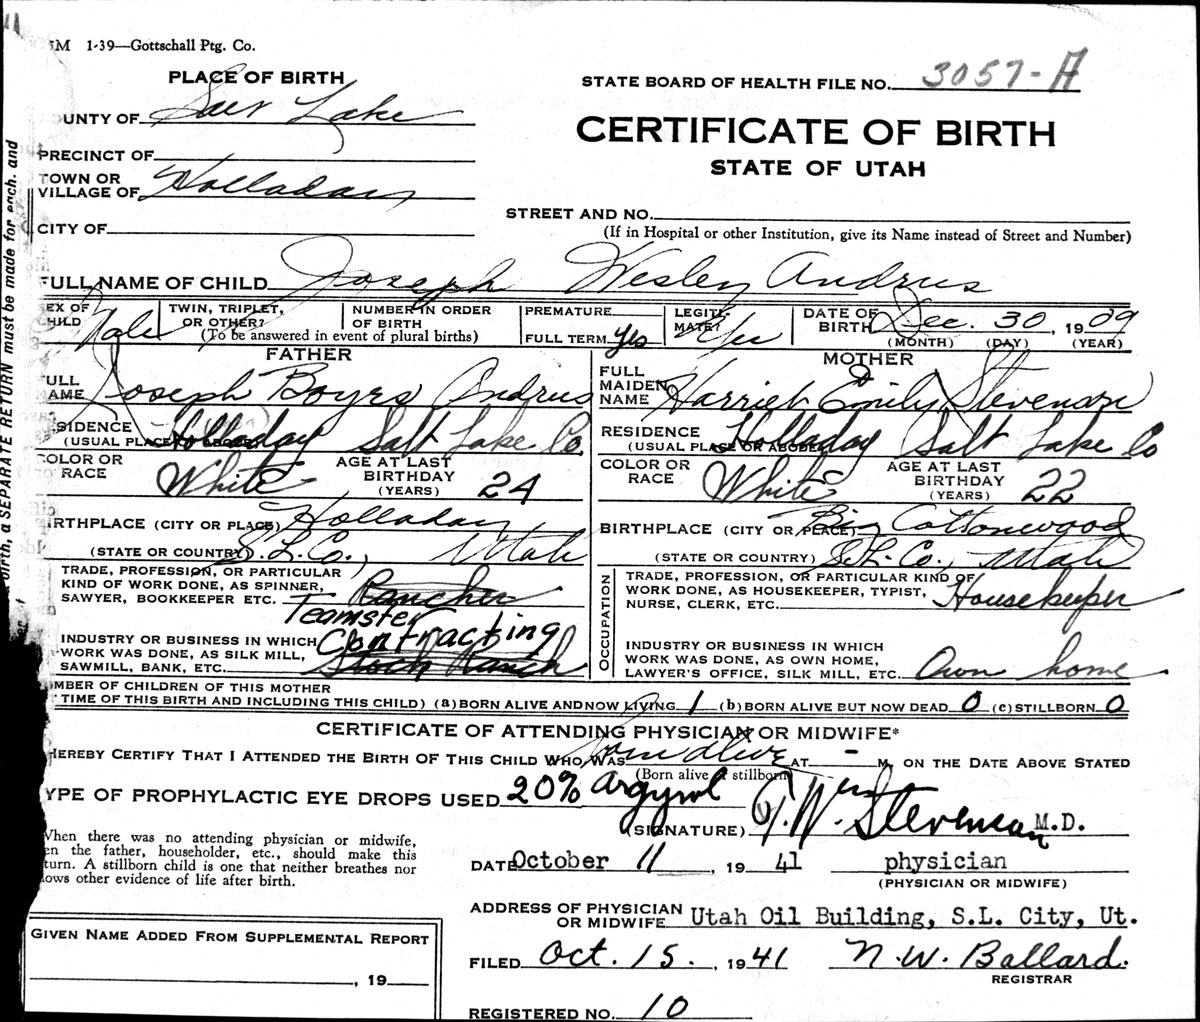 5M 1-39—Gottschall Ptg. Co.
PLACE OF BIRTH
STATE BOARD OF HEALTH FILE NO. 3057-A
OUNTY OF Salt Lake
CERTIFICATE OF BIRTH
STATE OF UTAH
PRECINCT OF
TOWN OR VILLAGE OF Holladay
CITY OF
STREET AND NO.
(If in Hospital or other Institution, give its Name instead of Street and Number)
FULL NAME OF CHILD Joseph Wesley Andrus
EX OF CHILD Male
TWIN, TRIPLET, OR OTHER?
NUMBER IN ORDER OF BIRTH
(To be answered in event of plural births)
PREMATURE
FULL TERM Yes
LEGITI-MATE? Yes
DATE OF BIRTH Dec. 30, 1909
(MONTH) (DAY) (YEAR)
FATHER
ULL AME Joseph Boyes Andrus
SIDENCE Holladay Salt Lake Co.
(USUAL PLACE OF ABODE)
COLOR OR RACE White
AGE AT LAST BIRTHDAY (YEARS) 24
IRTHPLACE (CITY OR PLACE) Holladay
(STATE OR COUNTRY) S.L.Co., Utah
TRADE, PROFESSION, OR PARTICULAR
KIND OF WORK DONE, AS SPINNER,
SAWYER, BOOKKEEPER ETC. Rancher
Teamster
INDUSTRY OR BUSINESS IN WHICH Contracting
WORK WAS DONE, AS SILK MILL,
SAWMILL, BANK, ETC. Stock Ranch
MOTHER
FULL MAIDEN NAME Harriet Emily Stevenson
RESIDENCE Holladay Salt Lake Co
(USUAL PLACE OR ABODE)
COLOR OR RACE White
AGE AT LAST BIRTHDAY (YEARS) 22
BIRTHPLACE (CITY OR PLACE) Big Cottonwood
(STATE OR COUNTRY) S.L.Co., Utah
OCCUPATION
TRADE, PROFESSION, OR PARTICULAR KIND OF
WORK DONE, AS HOUSEKEEPER, TYPIST, Housekeeper
NURSE, CLERK, ETC.
INDUSTRY OR BUSINESS IN WHICH
WORK WAS DONE, AS OWN HOME,
LAWYER'S OFFICE, SILK MILL, ETC. Own home
MBER OF CHILDREN OF THIS MOTHER
TIME OF THIS BIRTH AND INCLUDING THIS CHILD) (a) BORN ALIVE AND NOW LIVING 1 (b) BORN ALIVE BUT NOW DEAD 0 (c) STILLBORN 0
CERTIFICATE OF ATTENDING PHYSICIAN OR MIDWIFE*
HEREBY CERTIFY THAT I ATTENDED THE BIRTH OF THIS CHILD WHO WAS Born alive AT — M. ON THE DATE ABOVE STATED
(Born alive or stillborn)
YPE OF PROPHYLACTIC EYE DROPS USED 20% Argyrol
(SIGNATURE) Stevenson M.D.
When there was no attending physician or midwife,
en the father, householder, etc., should make this
turn. A stillborn child is one that neither breathes nor
ows other evidence of life after birth.
DATE October 11, 1941 physician
(PHYSICIAN OR MIDWIFE)
ADDRESS OF PHYSICIAN OR MIDWIFE Utah Oil Building, S.L. City, Ut.
FILED Oct. 15., 1941 N.W. Ballard.
REGISTRAR
REGISTERED NO. 10
GIVEN NAME ADDED FROM SUPPLEMENTAL REPORT
, 19
birth, a SEPARATE RETURN must be made for each. and